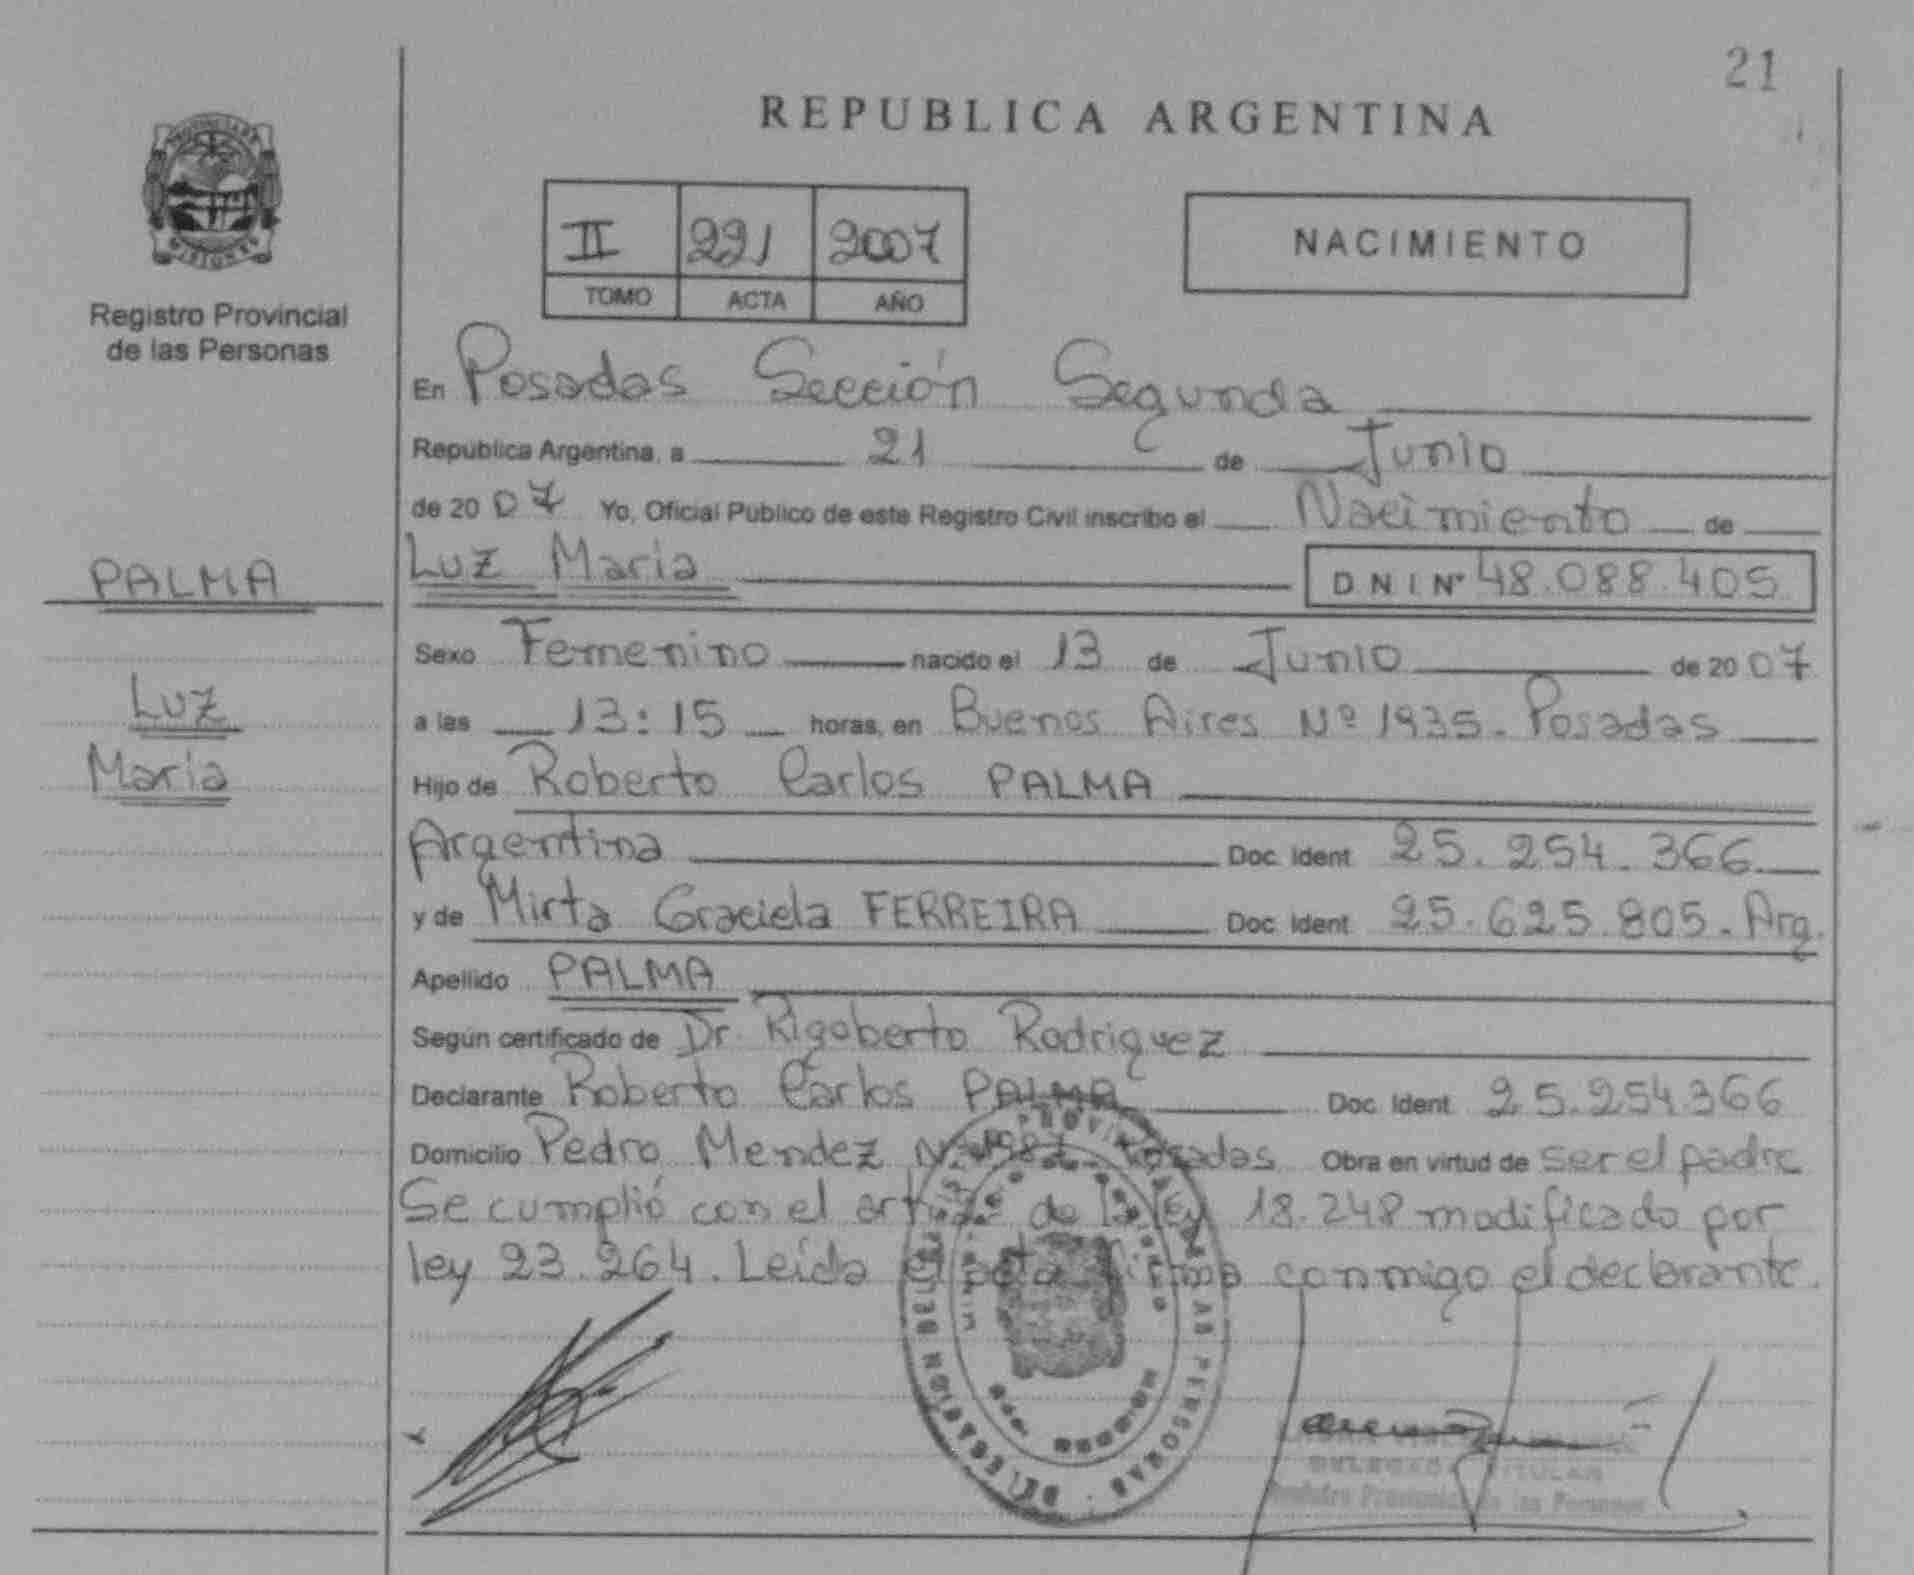 21
REPUBLICA ARGENTINA
PROVINCIA DE
MISIONES
Registro Provincial
de las Personas
II 221 2007
TOMO ACTA AÑO
NACIMIENTO
En Posadas Sección Segunda
República Argentina, a 21 de Junio
de 20 07 Yo, Oficial Público de este Registro Civil inscribo el Nacimiento de
PALMA
Luz María
DNI Nº 48.088.405
Sexo Femenino nacido el 13 de Junio de 20 07
Luz
María
a las 13:15 horas, en Buenos Aires Nº 1935. Posadas
Hijo de Roberto Carlos PALMA
Argentina Doc. Ident 25.254.366
y de Mirta Graciela FERREIRA Doc. Ident 25.625.805. Arg.
Apellido PALMA
Según certificado de Dr. Rigoberto Rodriguez
Declarante Roberto Carlos PALMA Doc. Ident 25.254.366
Domicilio Pedro Mendez Posadas Obra en virtud de ser el padre
Se cumplió con el art de la ley 18.248 modificado por
ley 23.264. Leída el acta firma conmigo el declarante.
DELEGACION
PERSONAS
TITULAR
Registro Provincial de las Personas